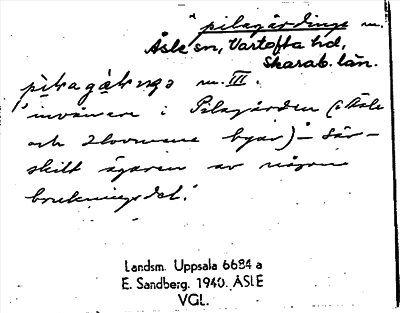 pilagårdinge m.
Åsle sn, Vartofta hd,
Skarab. län.
m. III.
invånare i Pilagården (i Åsle
och Hovmene byar) – sär-
skilt ägaren av någon
brukningsdel.
Landsm. Uppsala 6684 a
E. Sandberg. 1940. ÅSLE
VGL.